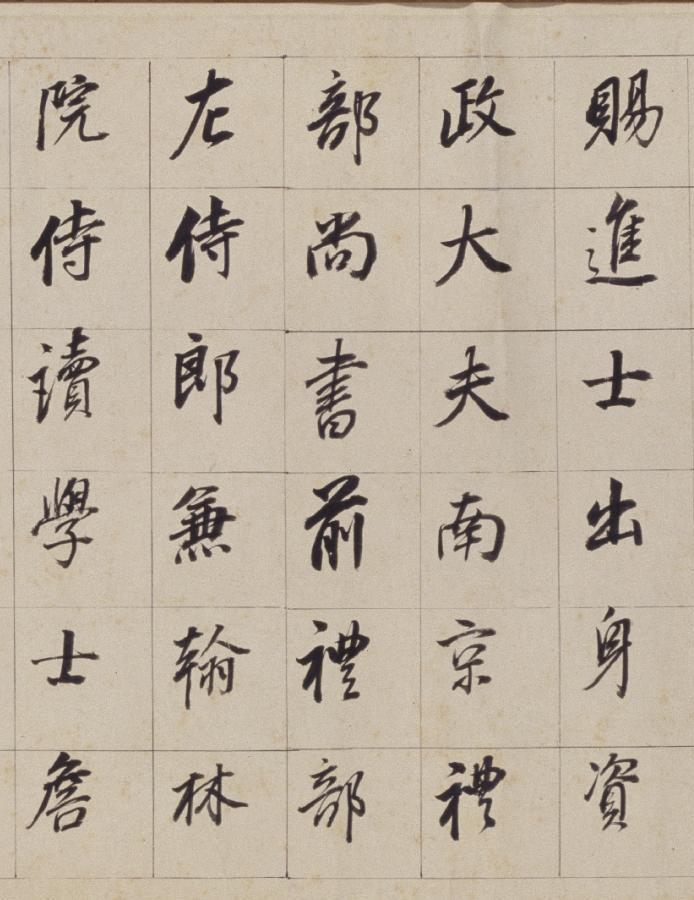 賜進士出身資
政大夫南京禮
部尚書前禮部
左侍郎兼翰林
院侍讀學士詹